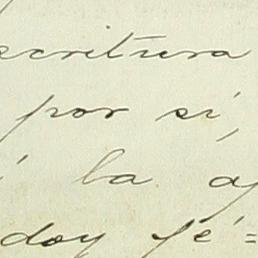 escritura
por sí,
la
doy fé=